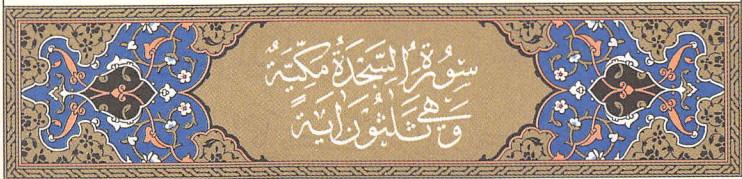 سُورَةُ السَّجْدَةُ مَكِّيَّةٌ
وَهِيَ ثَلٰثُونَ اٰيَةً